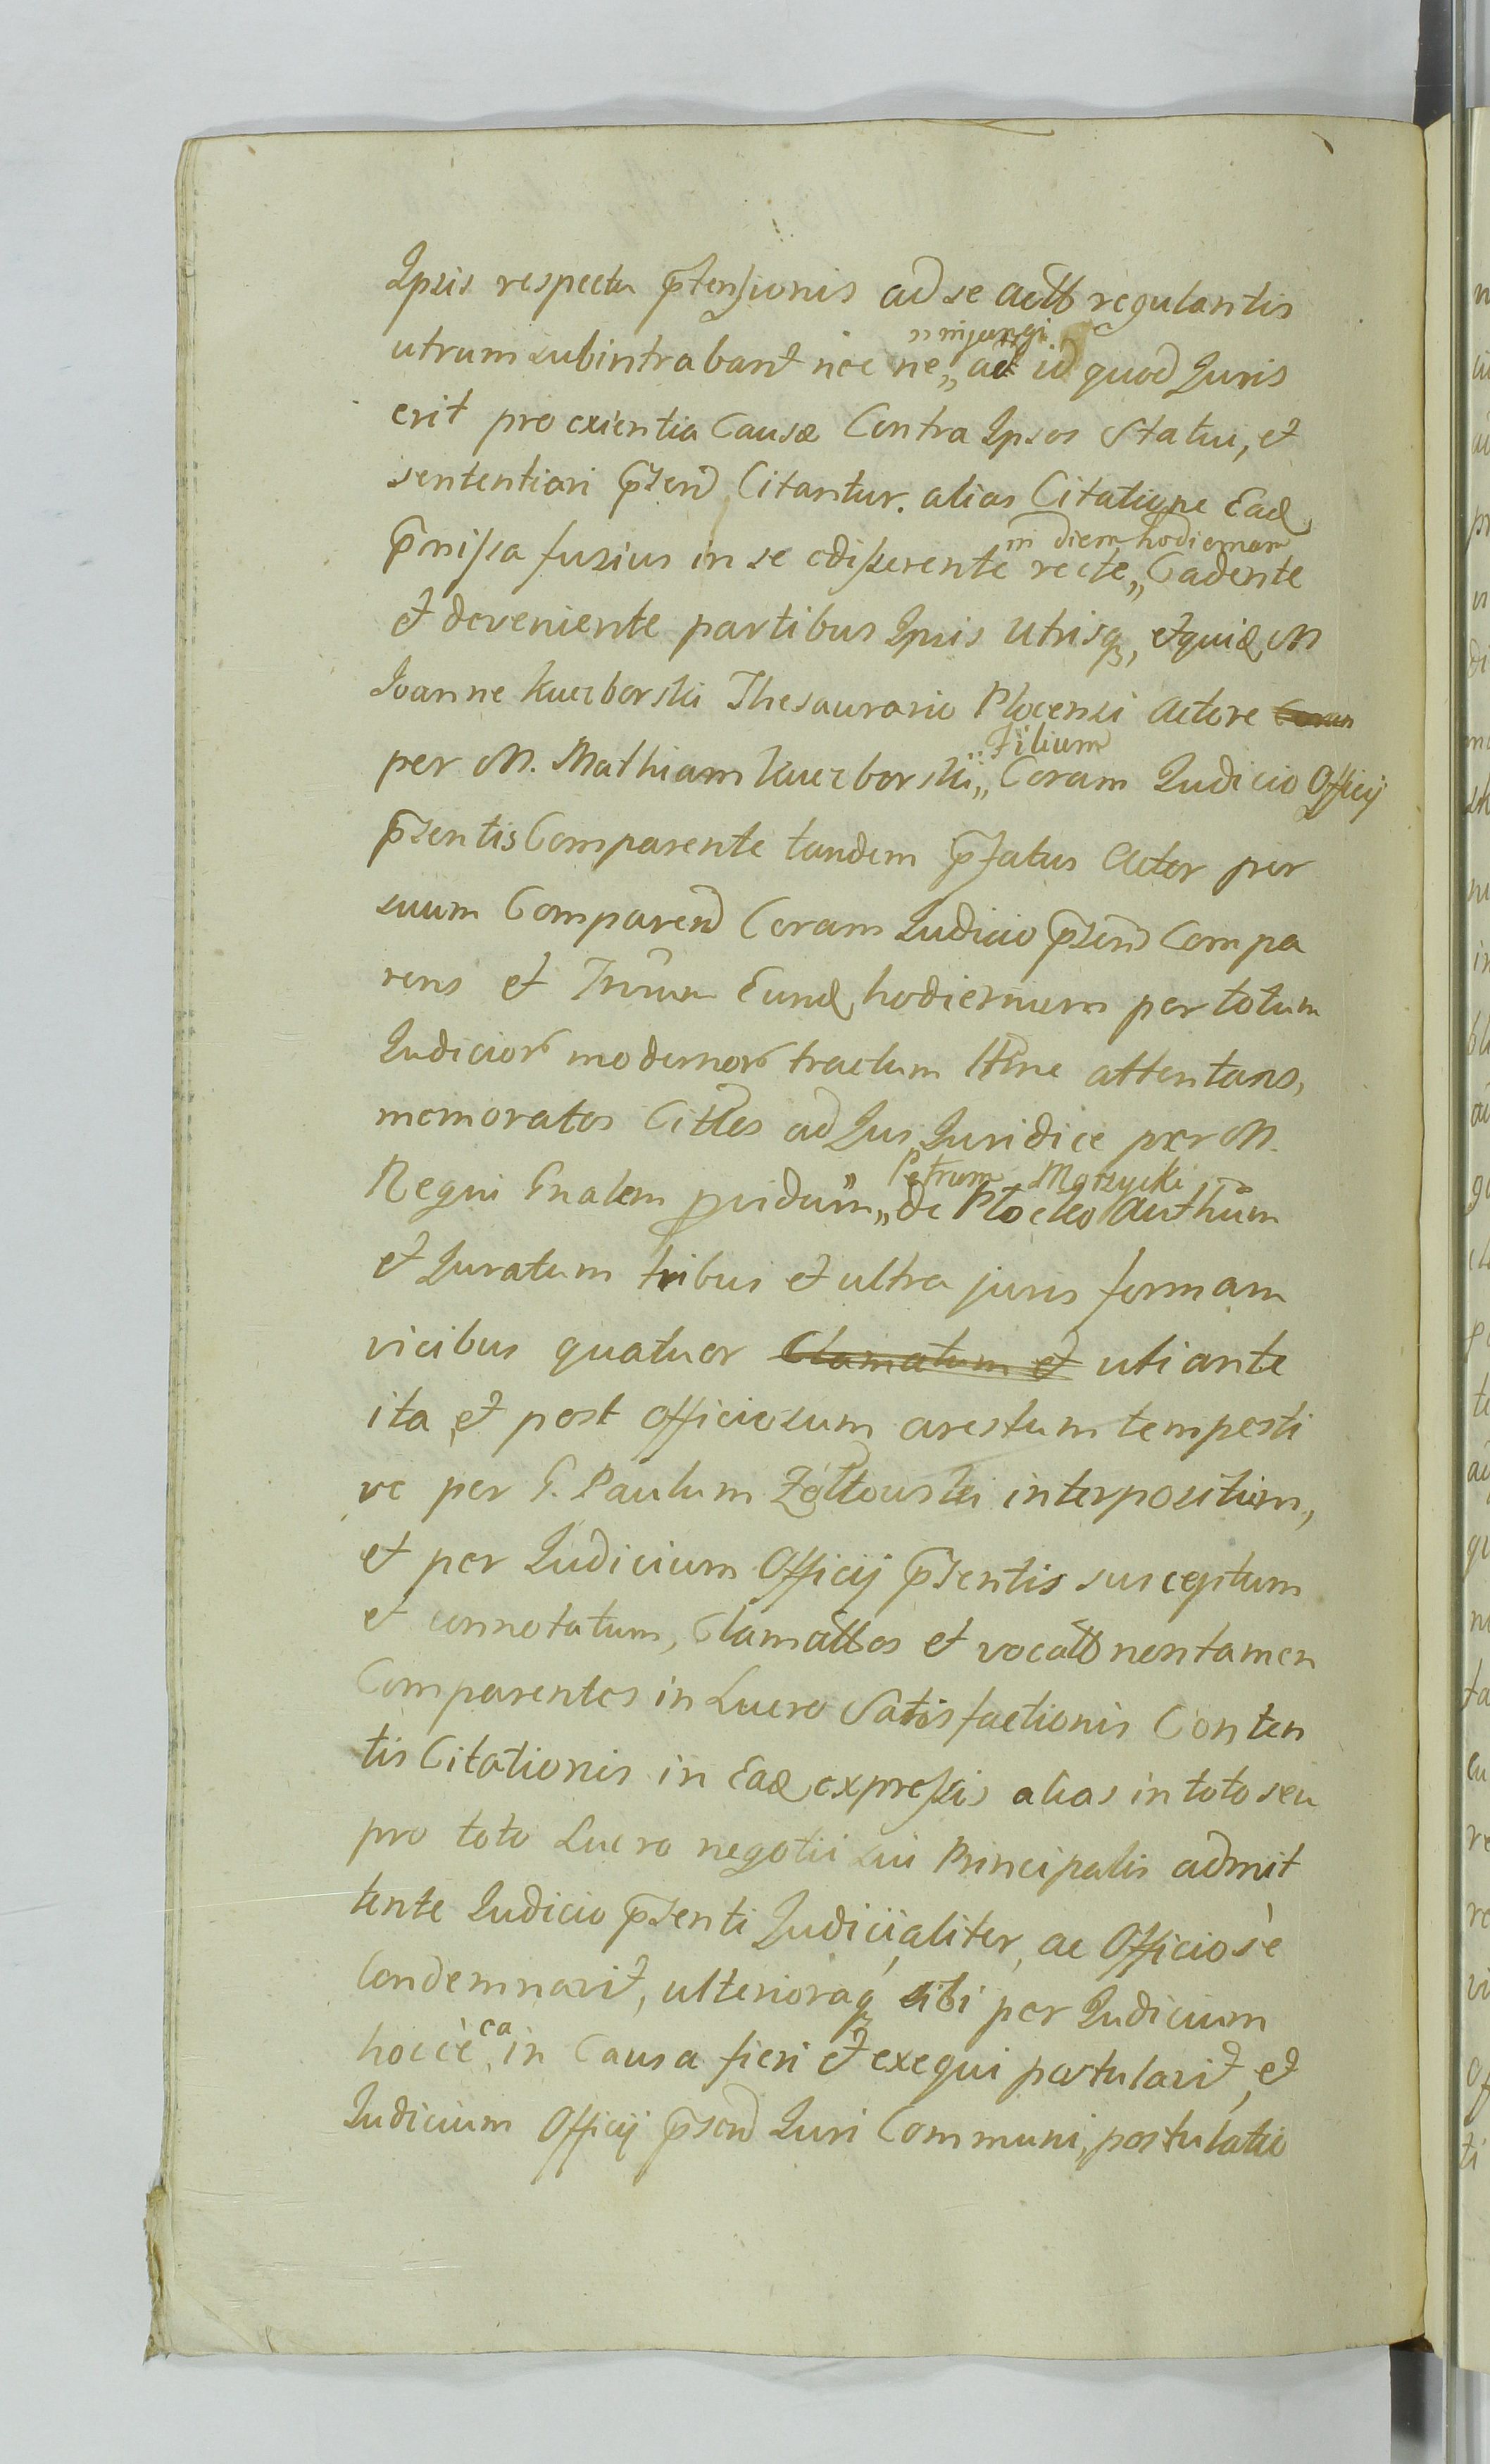 Ipsis respectu p̃tensionis ad se actt͠ regulantis
utrum subintrabant nec ne„ „injungi ad id quod Juris
erit pro exientia Causæ Contra Ipsos Statui, et
sententiari p̃send Citantur. alias Citatione Ead
p̃missa fusius in se edisserente recte„ in diem hodiernam Cadente
et deveniente partibus Ipsis Utrisq, etquid M
Joanne Kuczborski Thesaurario Plocensi Actore Coram
per M. Mathiam Kuczborski„ Filium Coram Judicio Officij
p̃sentis Comparente tandem p̃fatus Actor per
suum Comparend Coram Judicio p̃send Compa
rens et Tmum Eund hodiernum per totum
Judicior modernor tractum Ittme attentans,
memoratos Cittos ad Jus Juridice per M.
Regni Gnalem pvidum„ Petrum Marzycki de Plocko Authum
et Juratum tribus et ultra juris formam
vicibus quatuor Clamatum et uti ante
ita et post officiosum arestum tempesti
ve per G. Paulum Zołtowski interpositum,
et per Judicium Officij p̃sentis susceptum
et connotatum, Clamattos et vocatt non tamen
Comparentes in Lucro Satisfactionis Conten
tis Citationis in Ead expressis alias in toto seu
pro toto Lucro negotii sui Principalis admit
tente Judicio p̃senti Judicialiter, ac Officiosè
Condemnavit, ulterioraq sibi per Judicium
hoccè ea in Causa fieri et exequi postulavit, et
Judicium Officij p̃send Juri Communi, postulatio